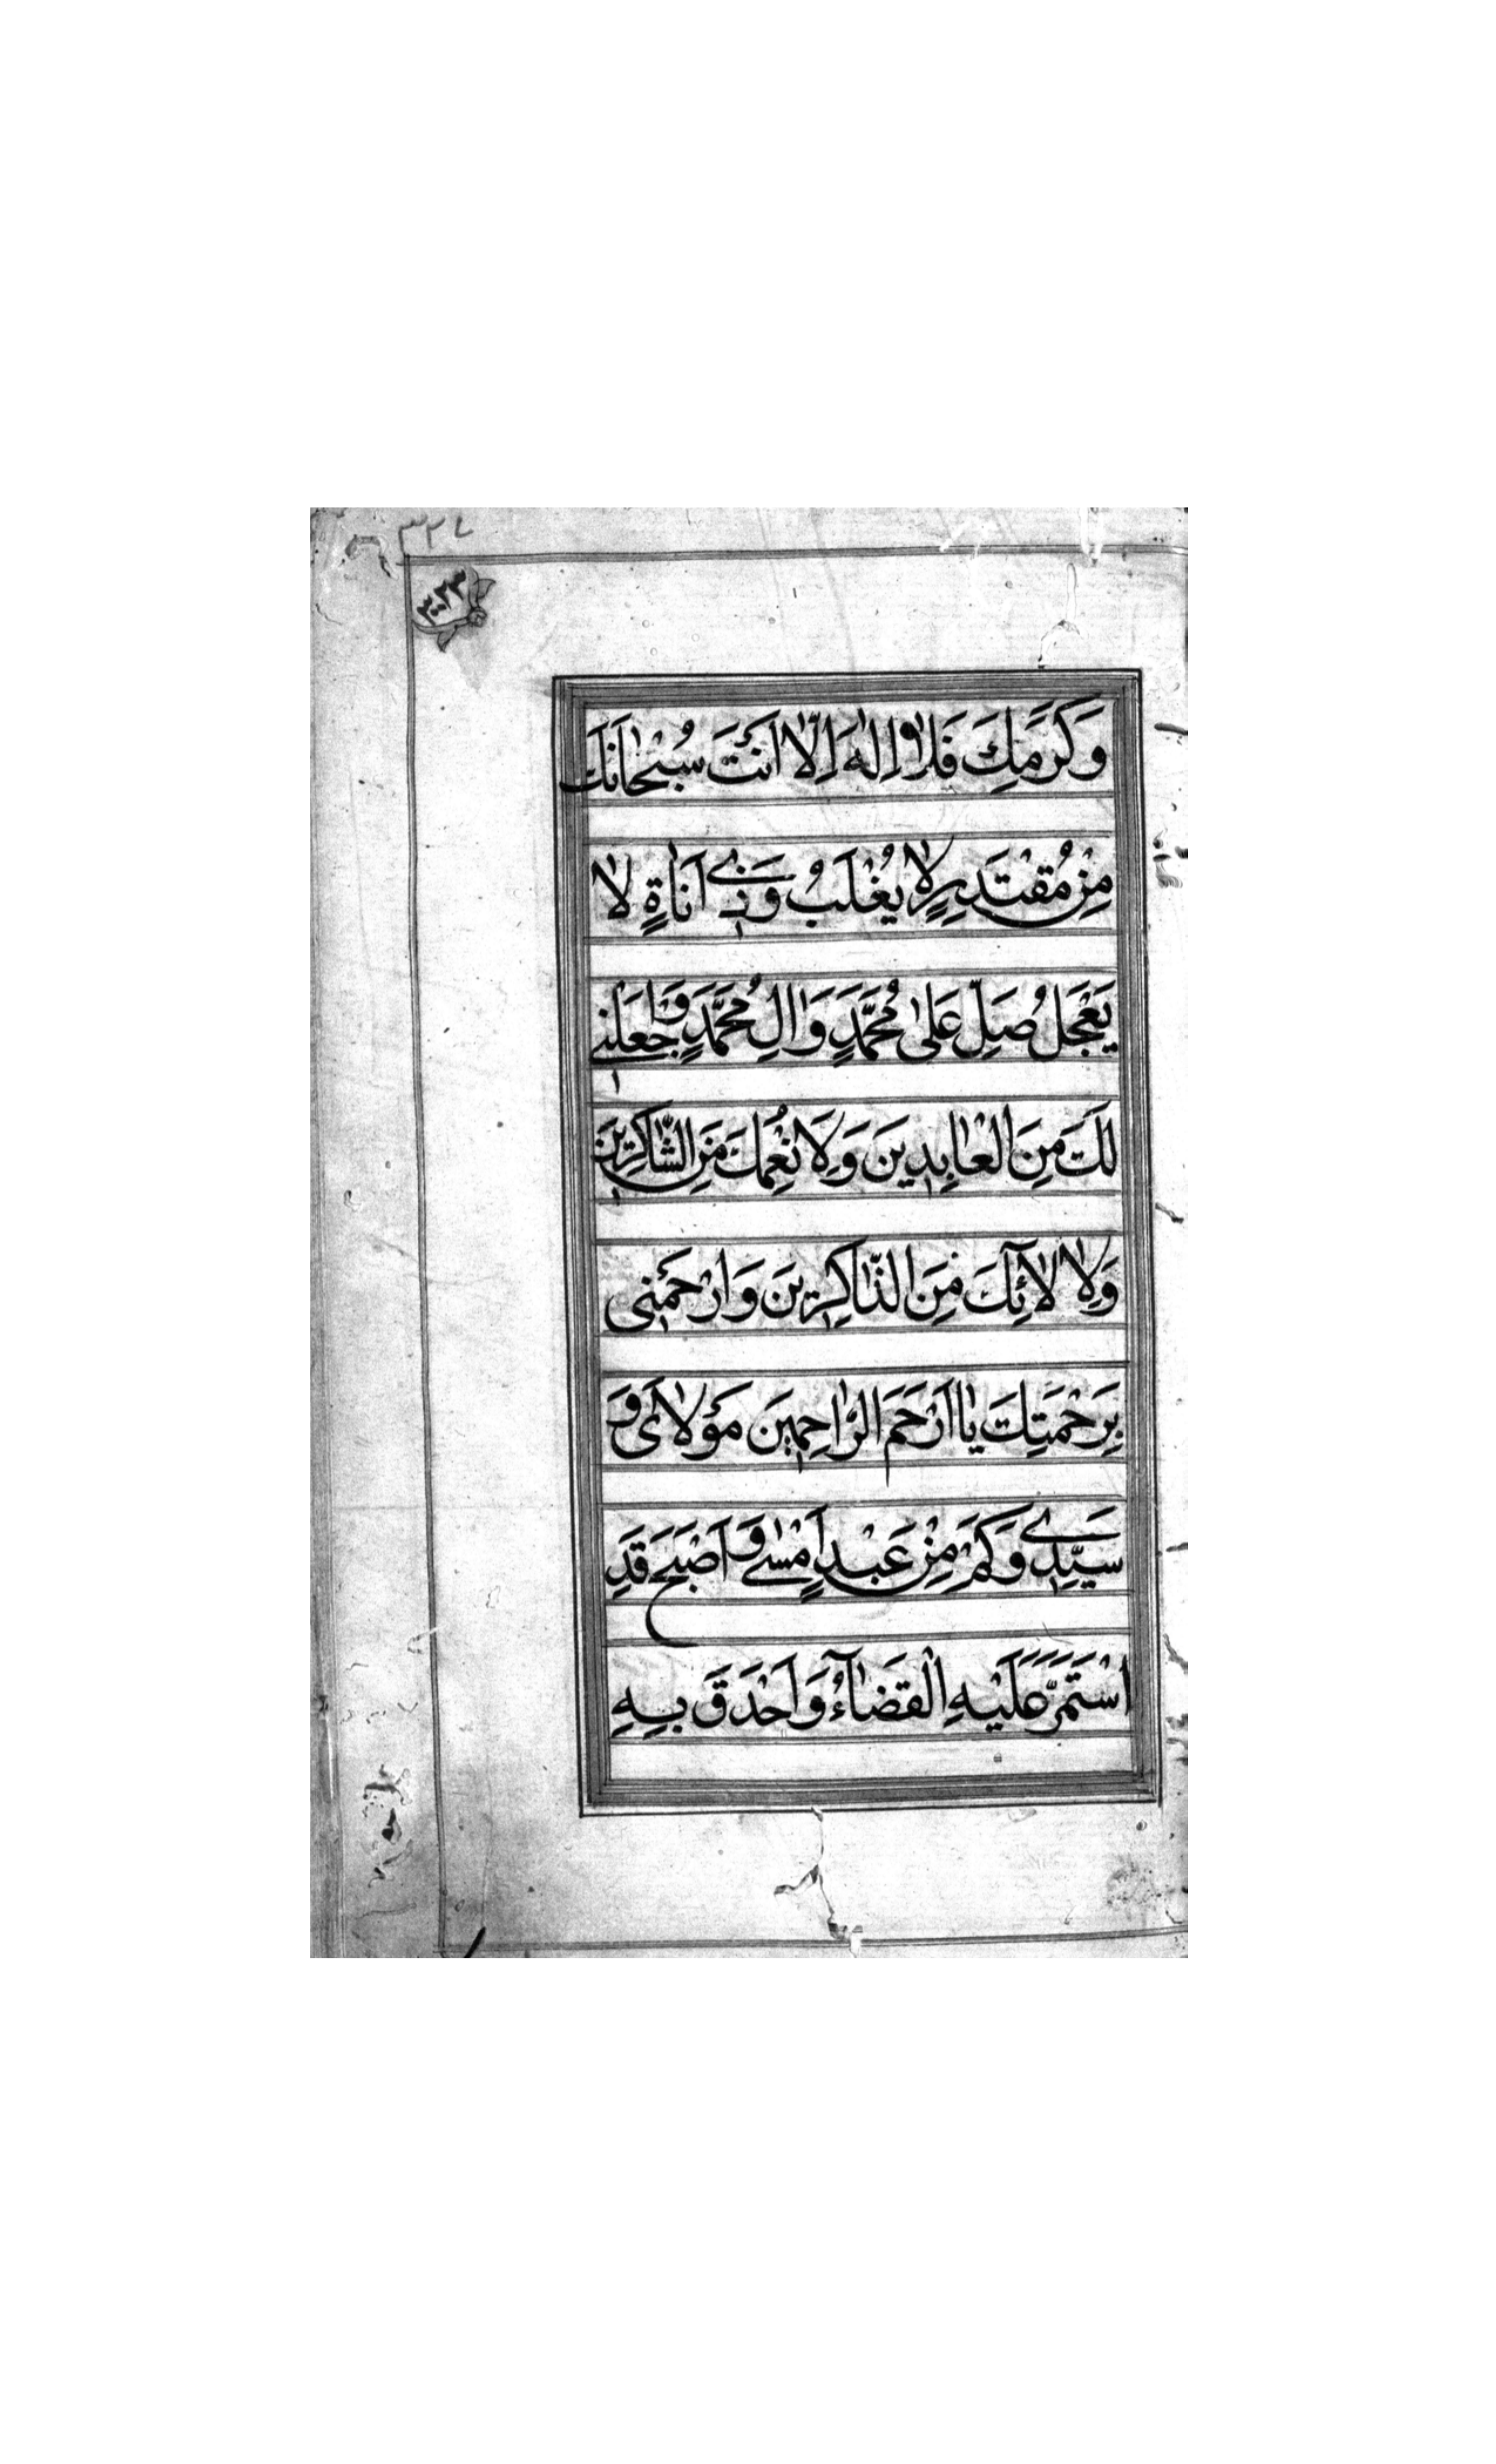 ۳۲۷
وَكَرَمِكَ فَلَا اِلٰهَ اِلَّا اَنْتَ سُبْحَانَكَ
مِنْ مُقْتَدِرٍ لَا يُغْلَبُ وَذِي اَنَاةٍ لَا
يَعْجَلُ صَلِّ عَلىٰ مُحَمَّدٍ وَاٰلِ مُحَمَّدٍ وَاجْعَلْنِي
لَكَ مِنَ الْعَابِدِينَ وَلِاَنْعُمِكَ مِنَ الشَّاكِرِينَ
وَلِاٰلَآئِكَ مِنَ الذَّاكِرِينَ وَارْحَمْنِي
بِرَحْمَتِكَ يَا اَرْحَمَ الرَّاحِمِينَ مَوْلَايَ وَ
سَيِّدِي وَكَمْ مِنْ عَبْدٍ اَمْسىٰ وَاَصْبَحَ قَدِ
اسْتَمَرَّ عَلَيْهِ الْقَضَآءُ وَاَحْدَقَ بِهِ